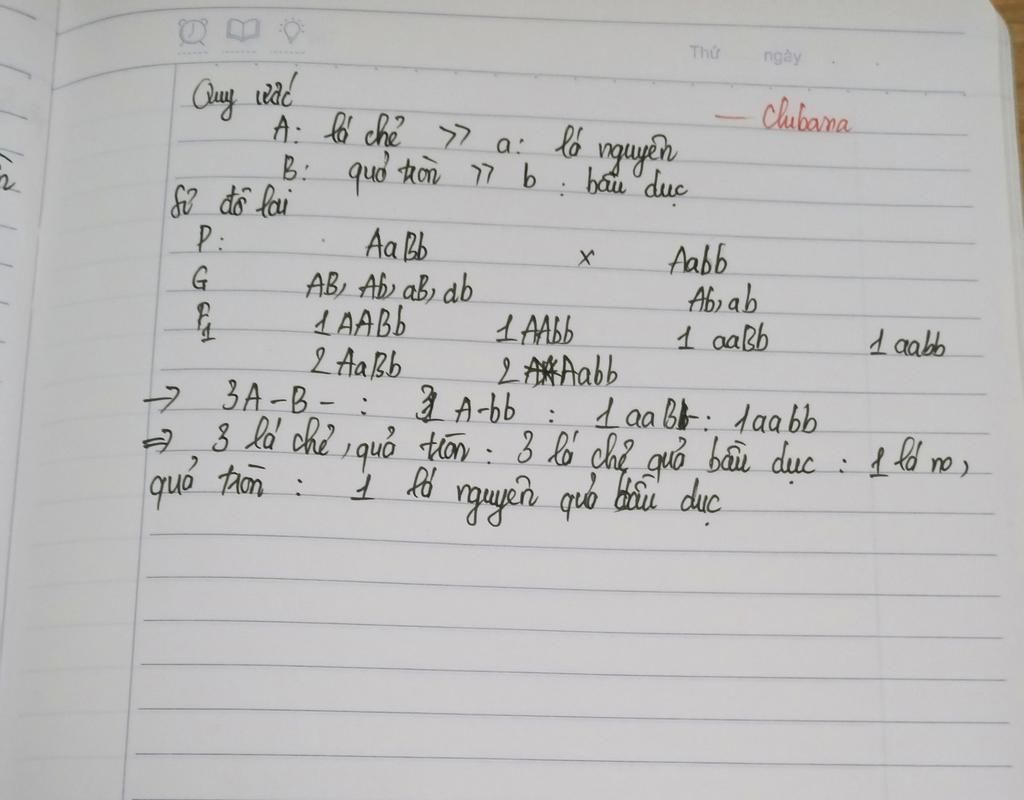 Thứ ngày
Quy ước
— Clubana
A: lá chẻ >> a: lá nguyên
B: quả tròn >> b : bầu dục
Sơ đồ lai
P: AaBb x Aabb
G AB, Ab, aB, ab Ab, ab
F1 1 AABb 1 AAbb 1 aaBb 1 aabb
2 AaBb 2 Aabb
→ 3A-B- : 3 A-bb : 1 aaB- : 1aabb
⇒ 3 lá chẻ, quả tròn : 3 lá chẻ quả bầu dục : 1 lá no,
quả tròn : 1 lá nguyên quả bầu dục